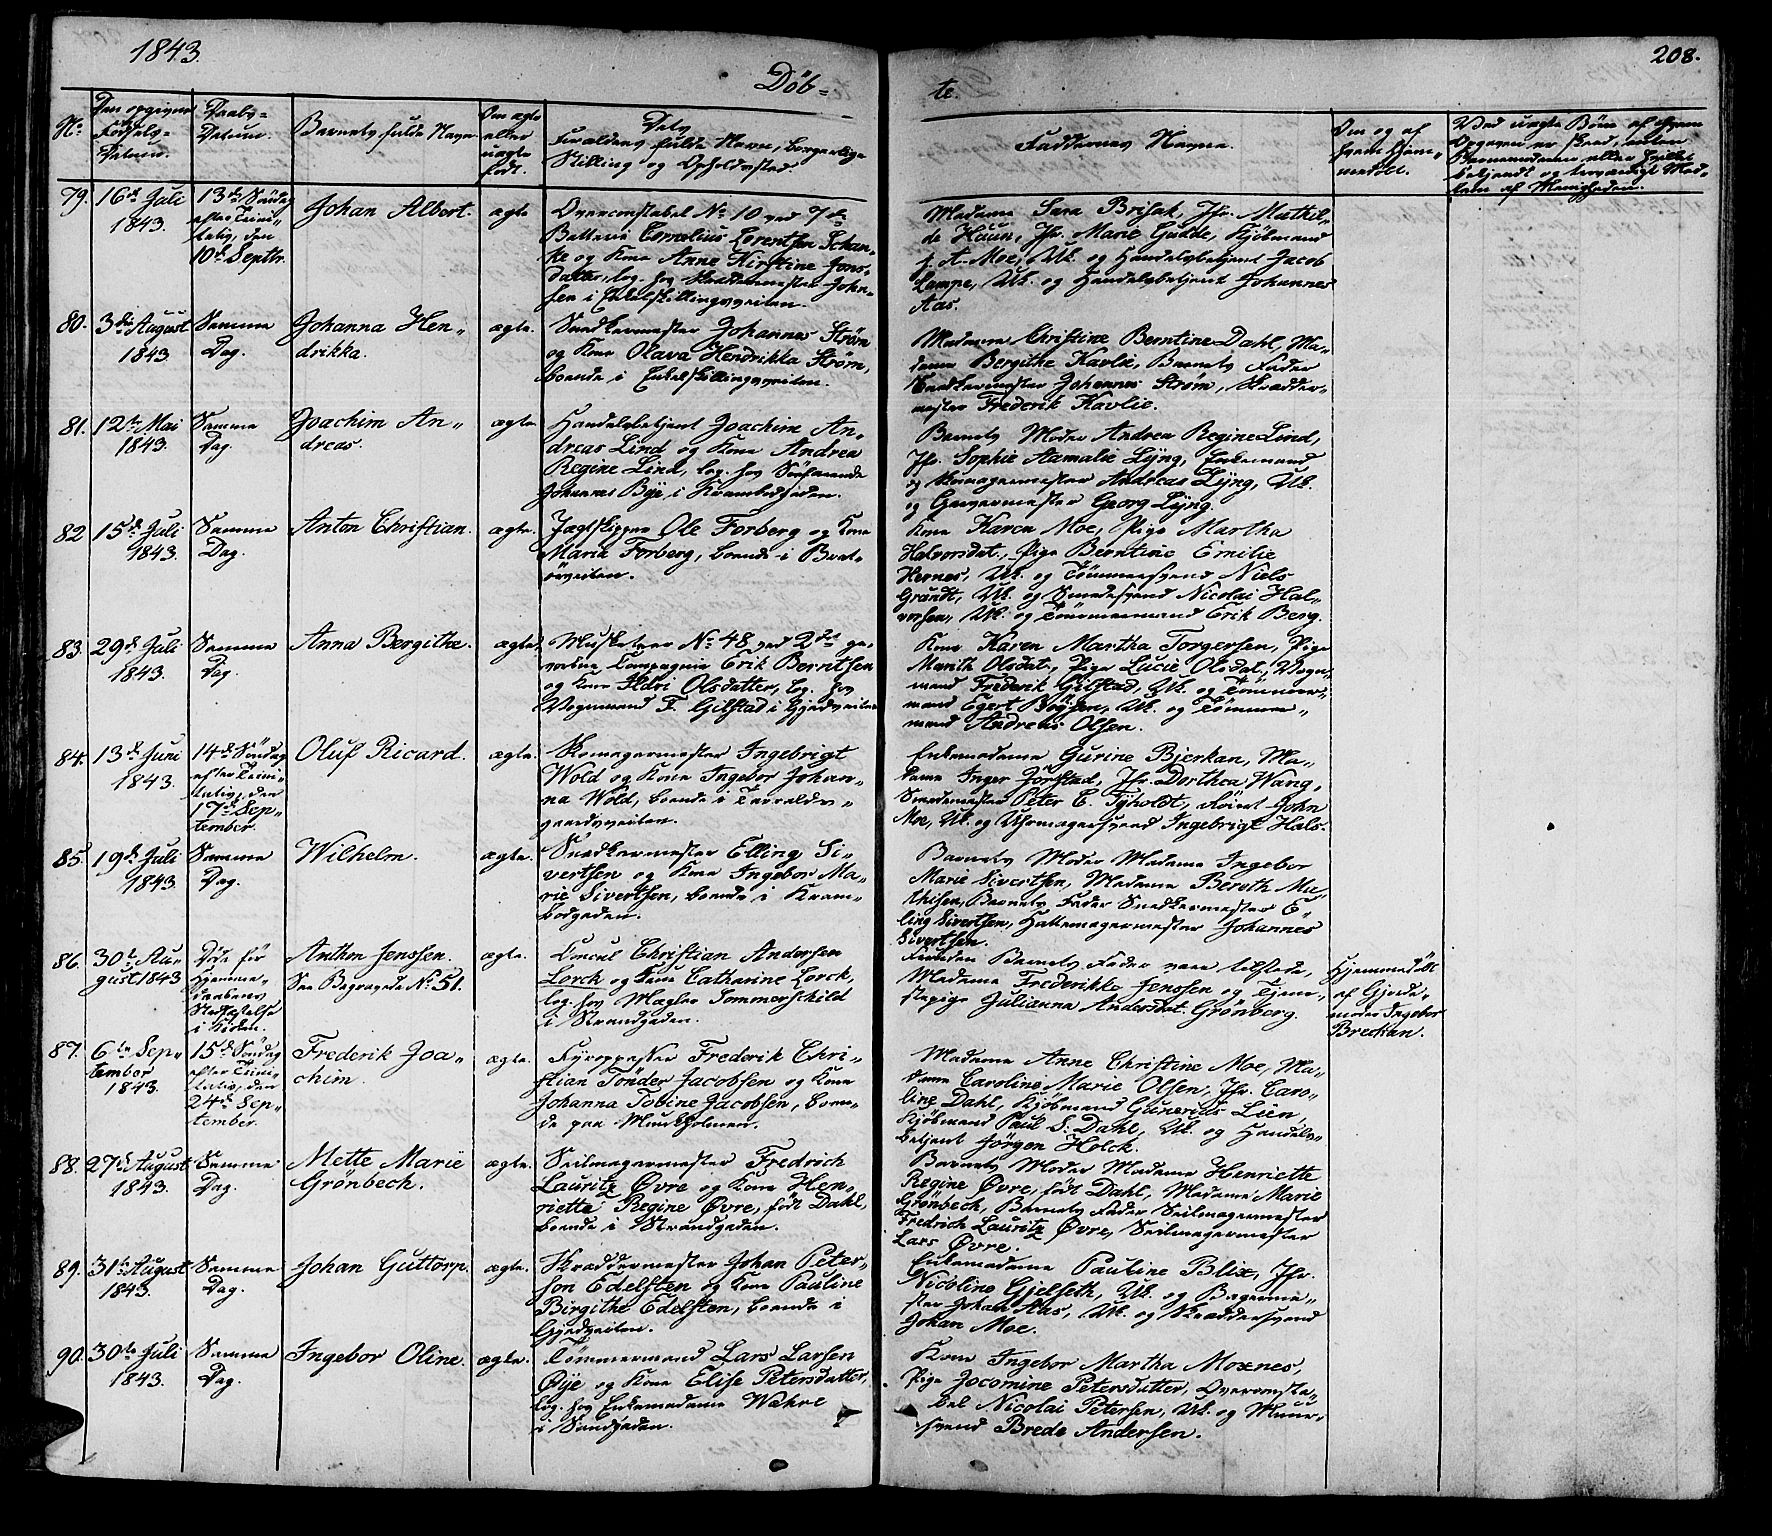 1843.
208.
Døb-
te.
No
Den opgivne
Fødsels-
Datum.
Daabs-
Datum.
Barnets fulde Navn
Om ægte
eller
uægte
født.
Dets
Forældres fulde Navn, borgerlige
Stilling og Opholdssted.
Faddernes Navne.
Om og af
hvem hjem-
medøbt.
Ved uægte Børn af hvem
Opgaven er skeed, enten
Barnemoderen eller hvilket
bekjendt og troværdigt Med-
lem af Menigheden.
79.
16de Juli
1843.
13de Søndag
efter Trini-
tatis, den
10de Septbr.
Johan Albert.
ægte
Overconstabel No 10 ved 7de
Batterie Cornelius Lorentsen Schan-
ke og Kone Anne Kirstine Jons-
datter, log. hos Skræddermester John-
sen i Enkelskillingsveiten.
Madame Sara Brisak, Jfr. Mathil-
de Huun, Jfr. Marie Gudde, Kjøbmand
J. A. Moe, Uk. og Handelsbetjent Jacob
Lampe, Uk. og Handelsbetjent Johannes
Aas.
80.
3die August
1843
Samme
Dag.
Johanna Hen-
drikka.
ægte.
Snedkermester Johannes Strøm
og Kone Olava Hendrikka Strøm,
boende i Enkelskillingsveiten.
Madame Christine Berntine Dahl, Ma-
dame Bergithe Kavlie, Barnets Fader
Snedkermester Johannes Strøm, Skrædder-
mester Frederik Kavlie.
81.
12te Mai
1843.
Samme
Dag.
Joachim An-
dreas.
ægte
Handelsbetjent Joachim An-
dreas Lind og Kone Andrea
Regine Lind, log. hos Søefarende
Johannes Bye i Krambodgaden.
Barnets Moder Andrea Regine Lind,
Jfr. Sophie Aamalie Lÿng, Enkemand
og Skomagermester Andreas Lÿng, Uk.
og Garvermester Georg Lÿng.
82
15de Juli
1843.
Samme
Dag.
Anton Christian.
ægte.
Jagtskipper Ole Forberg og Kone
Maria Forberg, boende i Brat-
ørveiten.
Kone Karen Moe, Pige Martha
Halvorsdat., Pige Berntine Emilie
Hernes, Uk. og Tømmersvend Niels
Grandt, Uk. og Smedesvend Nicolai Hal-
vorsen, Uk. og Tømmermand Erik Berg.
83.
29de Juli
1843.
Samme
Dag.
Anna Bergithe.
ægte.
Musketeer No 48 ved 2det ge-
vorbne Compagnie Erik Berntsen
og Kone Ildri Olsdatter, log. hos
Vognmand F. Gilstad i Gjedveiten
Kone Karen Martha Torgersen, Pige
Marith Olsdat., Pige Lucie Olsdat., Vogn-
mand Frederik Gilstad, Uk. og Tømmer-
mand Egert Boÿsen, Uk. og Tømmer-
mand Andreas Olsen.
84.
13de Juni
1843.
14de Søndag
efter Trini-
tatis, den
17de Sep-
tember.
Oluf Ricard.
ægte.
Skomagermester Ingebrigt
Wold og Kone Ingebor Johan-
na Wold, boende i Taralds-
gaardsveiten.
Enkemadame Gurine Bjerkan, Ma-
dame Inger Jörstad, Jfr. Dorthea Wang,
Smedemester Peter C. Tÿholdt, John
Moe, Uk. og Uhrmagersvend Ingebrigt Hals.
85.
19de Juli
1843.
Samme
Dag.
Wilhelm.
ægte.
Snedkermester Elling Si-
vertsen og Kone Ingebor Ma-
rie Sivertsen, boende i Kram-
bodgaden.
Barnets Moder Madame Ingebor
Marie Sivertsen, Madame Bereth Ma-
thisen, Barnets Fader Snedkermester E-
ling Sivertsen, Hattemagermester Johannes
Sivertsen.
86.
30te Au-
gust 1843
Død før
Hjemme-
daabens
Stadfæstelse
i Kirken.
Anthon Jenssen.
See Begravede No 51.
ægte.
Consul Christian Andersen
Lorck og Kone Catharine Lorck,
log. hos Mægler Sommerschild
i Strandgaden.
Foruden Barnets Fader vare tilstede,
Madame Frederikke Jenssen og Tjene-
stepige Julianna Andersdat. Grønberg.
Hjemmedøbt
af Gjorde-
moder Ingebor
Breckan.
87.
6te Sep-
tember
1843.
15de Søndag
efter Trini-
tatis, den
24de Sep-
tember.
Frederik Joa-
chim.
ægte.
Fyrpasser Frederik Chri-
stian Tönder Jacobsen og Kone
Johanna Tobine Jacobsen, boen-
de paa Munkholmen.
Madame Anne Christine Moe, Ma-
dame Caroline Marie Olsen, Jfr. Caro-
line Dahl, Kjøbmand Gunerius Lien,
Kjøbmand Paul S. Dahl, Uk. og Handels-
betjent Jörgen Holck.
88.
27de August
1843.
Samme
Dag.
Mette Marie
Grönbech.
ægte.
Seilmagermester Fredrich
Lauritz Øvre og Kone Hen-
riette Regine Øvre, født Dahl,
boende i Strandgaden.
Barnets Moder Madame Henriette
Regine Øvre, født Dahl, Madame Marie
Grönbech, Barnets Fader Seilmagermester
Fredrich Lauritz Øvre, Seilmagermester
Lars Øvre.
89.
31te August
1843.
Samme
Dag.
Johan Guttorp.
ægte.
Skræddermester Johan Peter-
son Edelsten og Kone Pauline
Birgithe Edelsten, boende i
Gjedveiten.
Enkemadame Pauline Blix, Jfr.
Nicoline Gjelseth, Uk. og Bagerme-
ster Johan Aas, Uk. og Skræddersvend
Johan Moe.
90.
30te Juli
1843.
Samme
Dag.
Ingebor Oline.
ægte.
Tømmermand Lars Larsen
Øÿe og Kone Elise Petersdatter,
log. hos Enkemadame Wahre
i Sandgaden.
Kone Ingebor Martha Moxnes,
Pige Jocomine Petersdatter, Overconsta-
bel Nicolai Petersen, Uk. og Muur-
svend Brede Andersen.